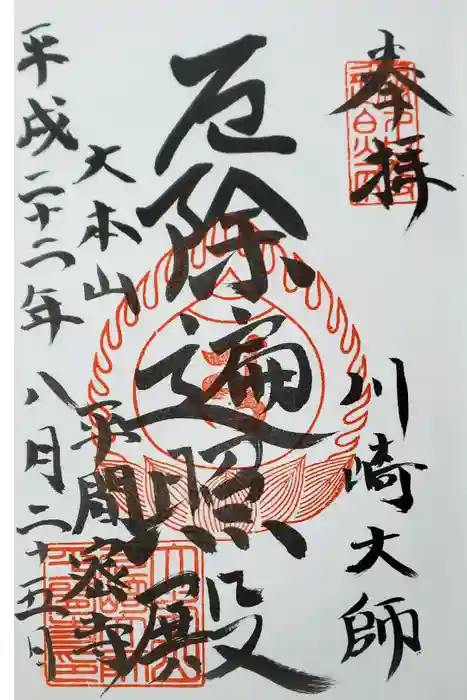 奉拝
川崎大師
厄除遍照殿
大本山
平間密寺
平成二十二年八月二十五日